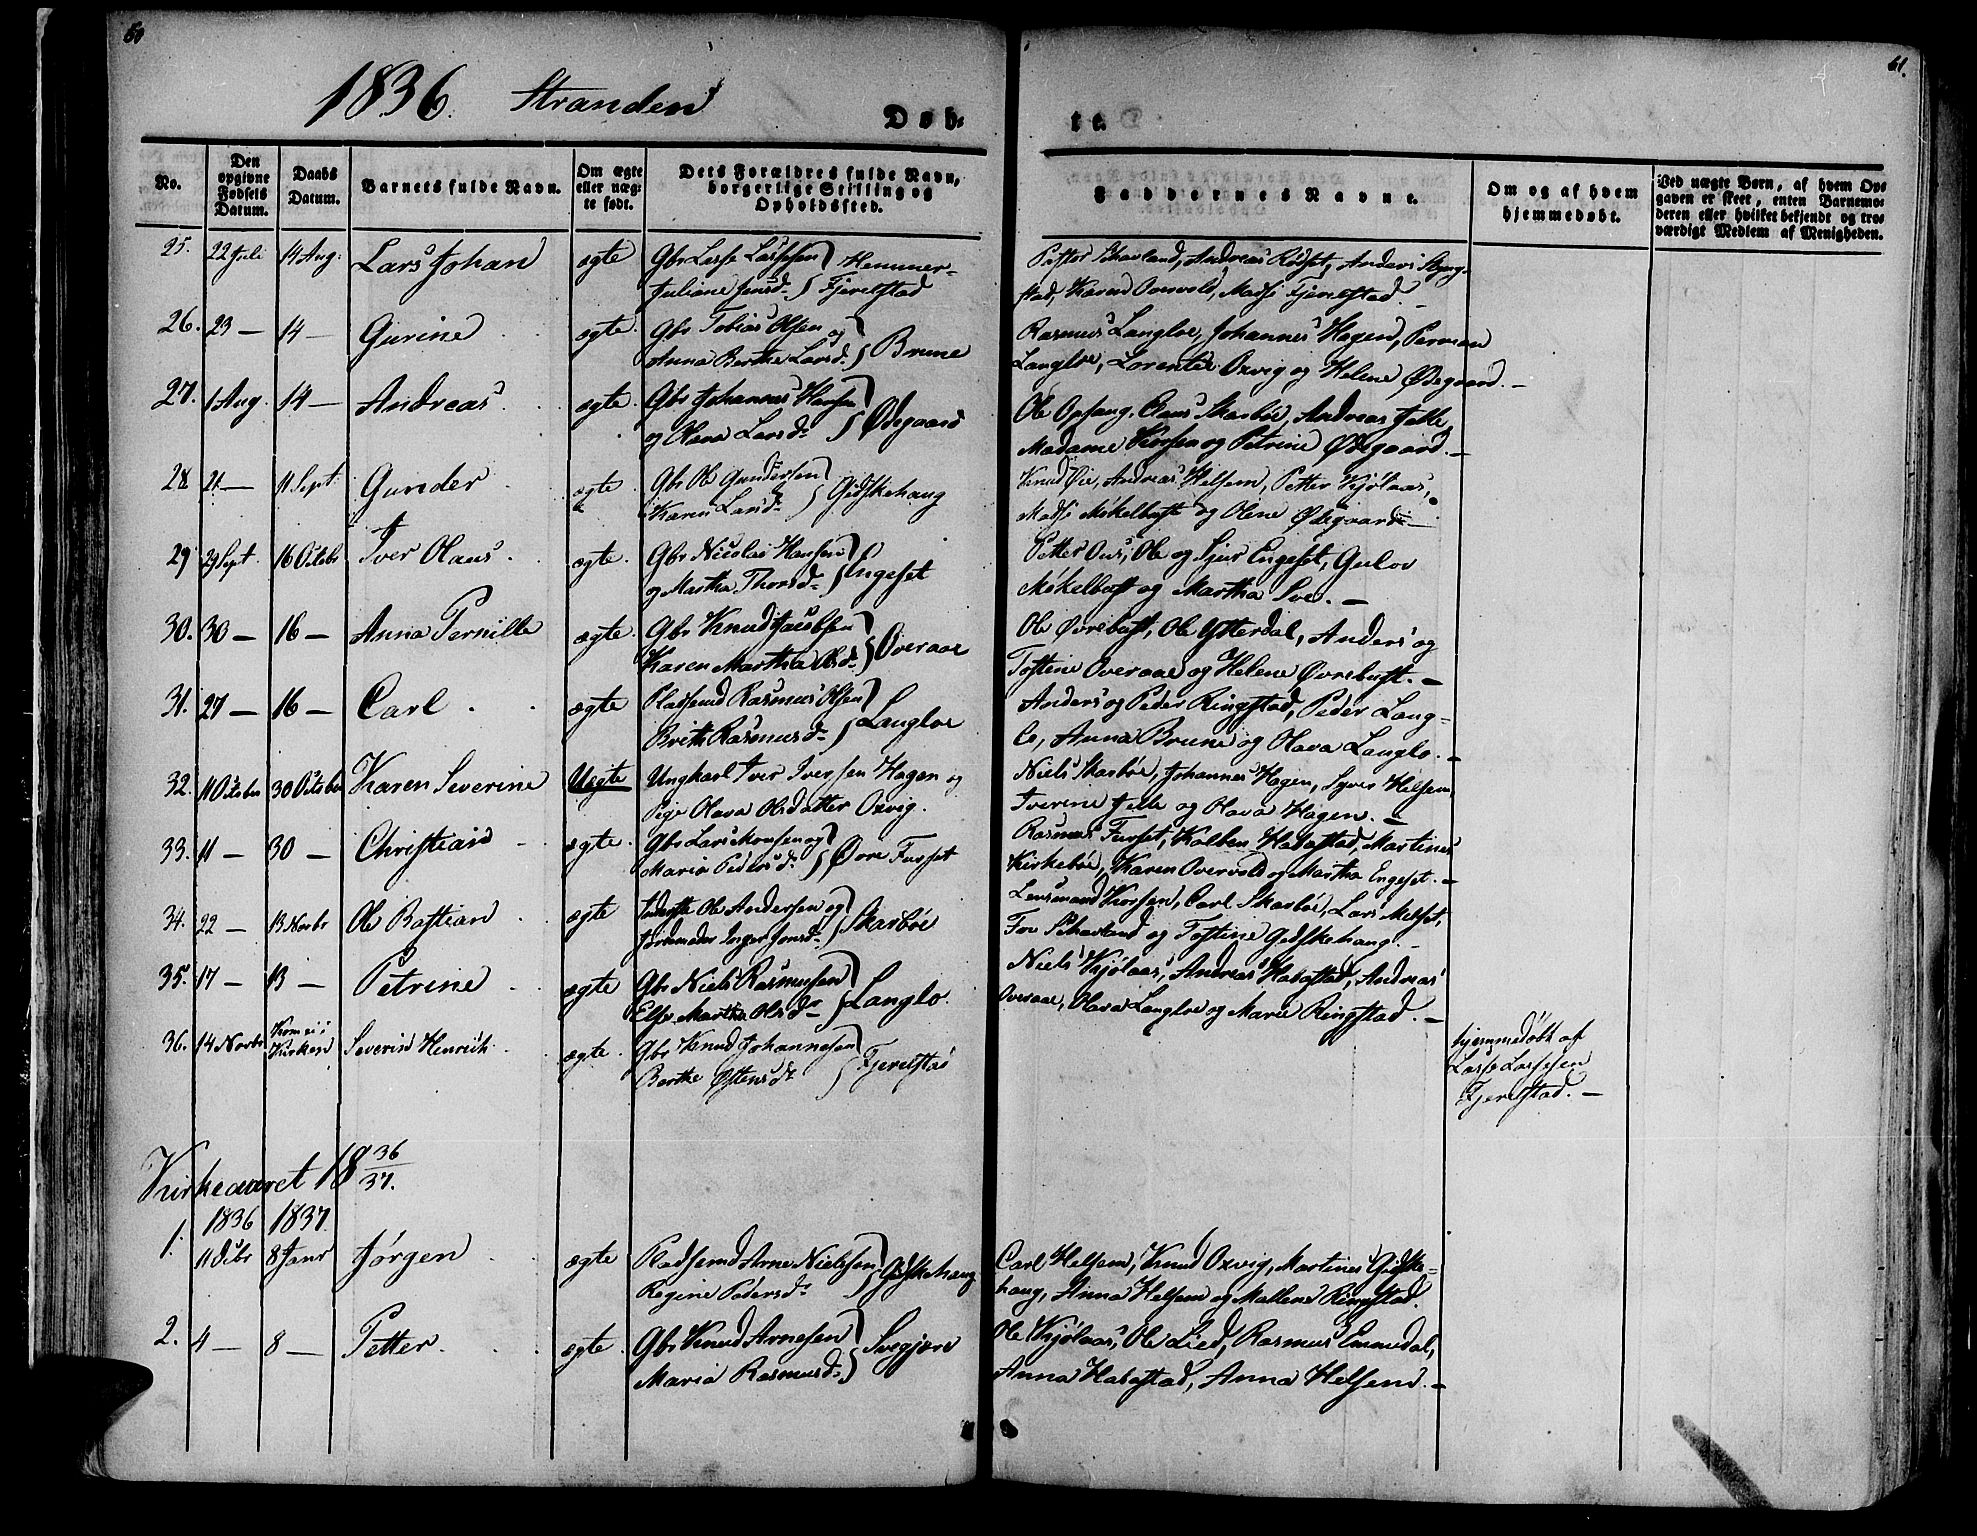 60
61.
1836. Stranden
Døb-
te.
No.
Den opgivne Fødsels Datum.
Daabs Datum.
Barnets fulde Navn.
Om ægte eller uæg-te født.
Dets Forældres fulde Navn, borgerlige Stilling og Opholdssted.
Faddernes Navne.
Om og af hvem hjemmedøbt.
Ved uægte Børn, af hvem Op-gaven er skeet, enten Barnemo-deren eller hvilket bekjendt og tro-værdigt Medlem af Menigheden.
25. 22 Juli 14 Aug: Lars Johan ægte Gbr Lasse Lassesen Hemmer-
Juliane Jensd. Fjerelstad
Pastor Schavland, Andreas Rødset, Anders
stad, Karen Overvold, Madsi Fjerelstad. —
26. 23 — 14 — Gurine ægte. Gbr Tobias Olsen og
Anna Berthe Larsd. Brune
Rasmus Langloe, Johannes Hagen, Perman
Langloe, Lorentse Oxvig og Helene Ødegaard. —
27. 1 Aug. 14 — Andreas ægte. Gbr Johannes Hansen
og Olava Larsd. Ødegaard
Ole Opsang, Claus Skarbøe, Andreas Jelle,
Madame Korsen og Petrine Ødegaard. —
28 21 — 11 Sept. Gunder ægte Gbr Ole Gundersen
Karen Larsd. Gidskehaug
Knud Øie, Andreas Helsem, Petter Kjølaas,
Madsi Møkelbust og Olene Ødegaard —
29 29 Sept. 16 Octobr Iver Olaus. ægte. Gbr Nicolai Hansen
og Martha Thorsd. Engeset
Petter Ous, Ole og Sjur Engeset, Gulov
Møkelbust og Martha Sve. —
30. 30 — 16 — Anna Pernille ægte. Gbr Knud Jacobsen
Karen Martha Olsd. Overaae
Ole Øvrebust, Ole Ytterdal, Anders og
Tostine Overaae og Helene Øvrebust. —
31. 27 — 16 — Carl ægte Pladsmd Rasmus Olsen
Brith Rasmusd. Langloe
Anders og Peder Ringstad, Peder Lang-
lo, Anna Brune og Olava Langlo. —
32. 11 Octobr 30 Octobr Karen Severine Uægte Ungkarl Iver Iversen Hagen og
Pige Olava Olsdatter Oxvig.
Niels Skarbøe, Johannes Hagen, Syver Helsem,
Iverine Jelle og Olava Hagen. —
33. 11 — 30 — Christian ægte. Gbr Lars Monsen og
Maria Pedersd. Øvre Furset
Rasmus Furset, Kolben Habostad, Martines
Kirkebøe, Karen Overvold og Martha Engeset. —
34. 22 — 13 Novbr Ole Bastian ægte Ole Andersen og
Jordmoder Inger Jonsd. Skarbøe
Lensmand Korsen, Carl Skarbøe, Lars Melset,
Frw Schavland og Tostine Gidskehaug. —
35. 17 — 13 — Petrine ægte Gbr Niels Rasmussen
Else Martha Olsd. Langlo.
Niels Kjølaas, Andreas Habostad, Andreas
Overaae, Olava Langloe og Marie Ringstad. —
36. 14 Novbr Kom ei i Kirken Severin Henrich. ægte. Gbr Knud Johannesen
Berthe Østensd. Fjerelstad
hjemmedøbt af
Lasse Lassesen
Fjerelstad. —
Kirkeaaret 18 36/37.
1836 1837.
1. 11 Dcbr 8 Janr Jørgen ægte Pladsemd Arne Nielssen
Regine Pedersd. Gidskehaug
Carl Helsem, Knud Oxvig, Martines Gidske-
haug, Anna Helsem og Mallene Ringstad.
2. 4 — 8 — Petter. ægte. Gbr Knud Arnesen
Maria Rasmusd. Svegjøre
Ole Kjølaas, Ole Lied, Rasmus Emmedal,
Anna Habostad, Anna Helsem. —